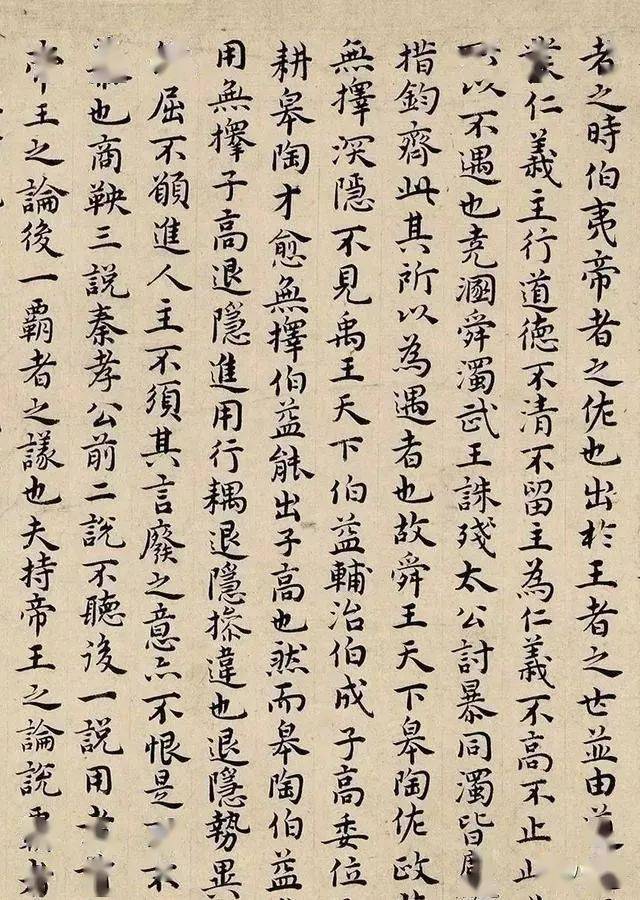 者之時伯夷帝者之佐也出於王者之世並由
仁義主行道德不清不留主為仁義不高不止
以不遇也堯溷舜濁武王誅殘太公討暴同濁皆
措鈞齊此其所以為遇者也故舜王天下皐陶佐政
無擇深隱不見禹王天下伯益輔治伯成子高委位
耕皐陶才愈無擇伯益能出子高也然而皐陶伯益
用無擇子高退隱進用行耦退隱操違也退隱勢異
屈不願進人主不須其言廢之意亦不恨是不
也商鞅三說秦孝公前二說不聽後一說用者
帝王之論後一霸者之議也夫持帝王之論說霸者